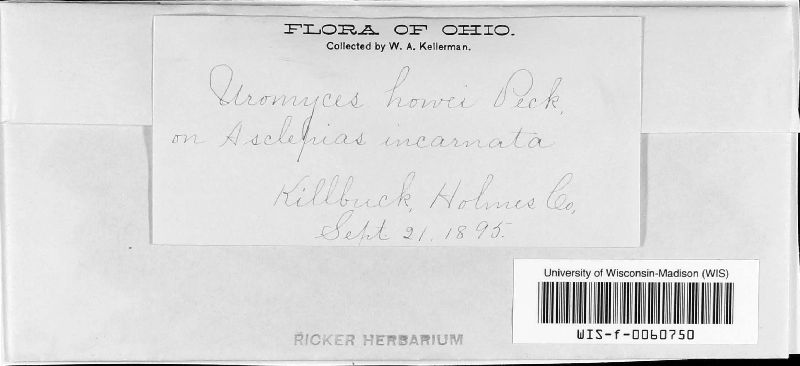 FLORA OF OHIO.
Collected by W. A. Kellerman.
Uromyces howei Peck,
on Asclepias incarnata
Killbuck, Holmes Co,
Sept 21, 1895.
University of Wisconsin-Madison (WIS)
WIS-f-0060750
RICKER HERBARIUM